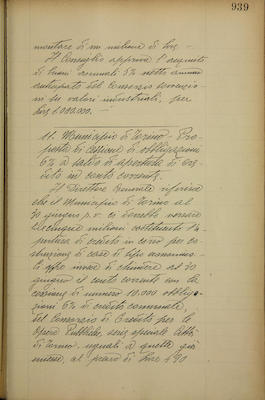 939
montare di un milione di lire —
Il Consiglio approva l'acquisto
di buoni annuali 5% netto annuo
anticipato del Consorzio sovvenzio-
ni su valori industriali, per
Lire 1.000.000. —
11. Municipio di Torino - Pro-
posta di cessione di obbligazioni
6% a saldo di apertura di cre-
dito in conto corrente.
Il Direttore Generale riferisce
che il Municipio di Torino al
30 giugno p. v. ci dovrebbe versare
cinque milioni costituenti l'a-
pertura di credito in corso per co-
struzione di case di tipo economico.
Ci offre invece di chiudere al 30
giugno il conto corrente con la
cessione di numero 10.000 obbliga-
zioni 6% di credito comunale,
del Consorzio di Credito per le
Opere Pubbliche, serie speciale Città
di Torino, uguali a quelle già
al prezzo di Lire 490